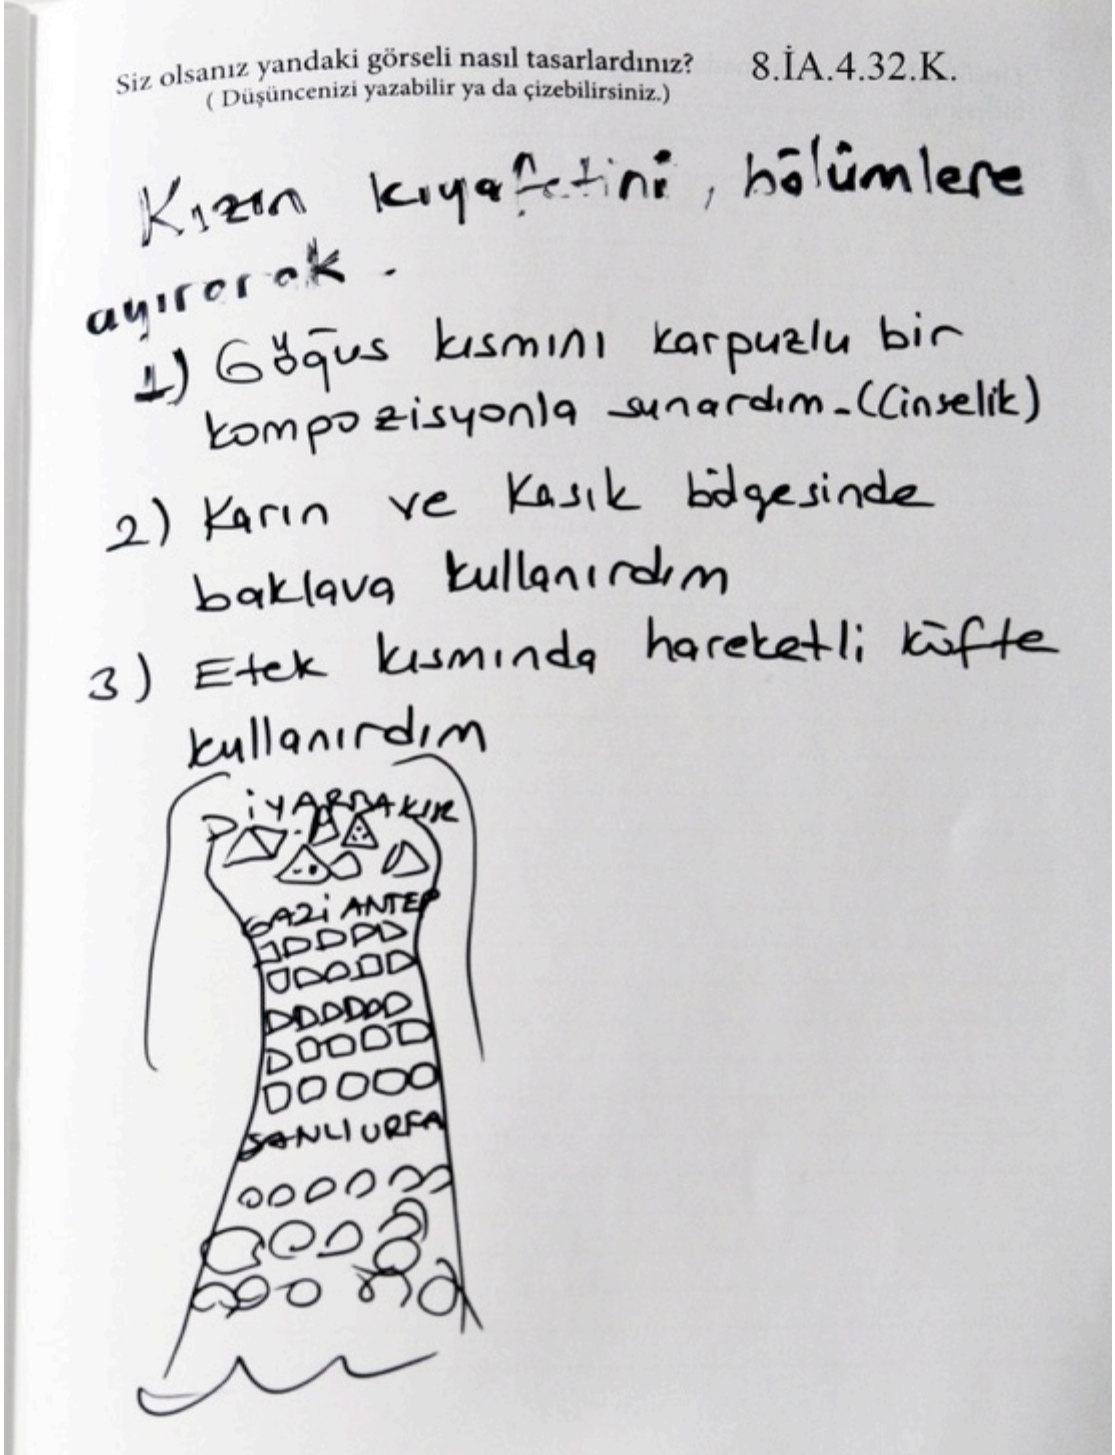 Siz olsanız yandaki görseli nasıl tasarlardınız?
( Düşüncenizi yazabilir ya da çizebilirsiniz.)
8.İA.4.32.K.
Kızın kıyafetini, bölümlere
ayırarak.
1) Göğüs kısmını karpuzlu bir
kompozisyonla sunardım-(Cinselik)
2) Karın ve Kasık bölgesinde
baklava kullanırdım
3) Etek kısmında hareketli köfte
kullanırdım
DİYARBAKIR
GAZİ ANTEP
ŞANLIURFA